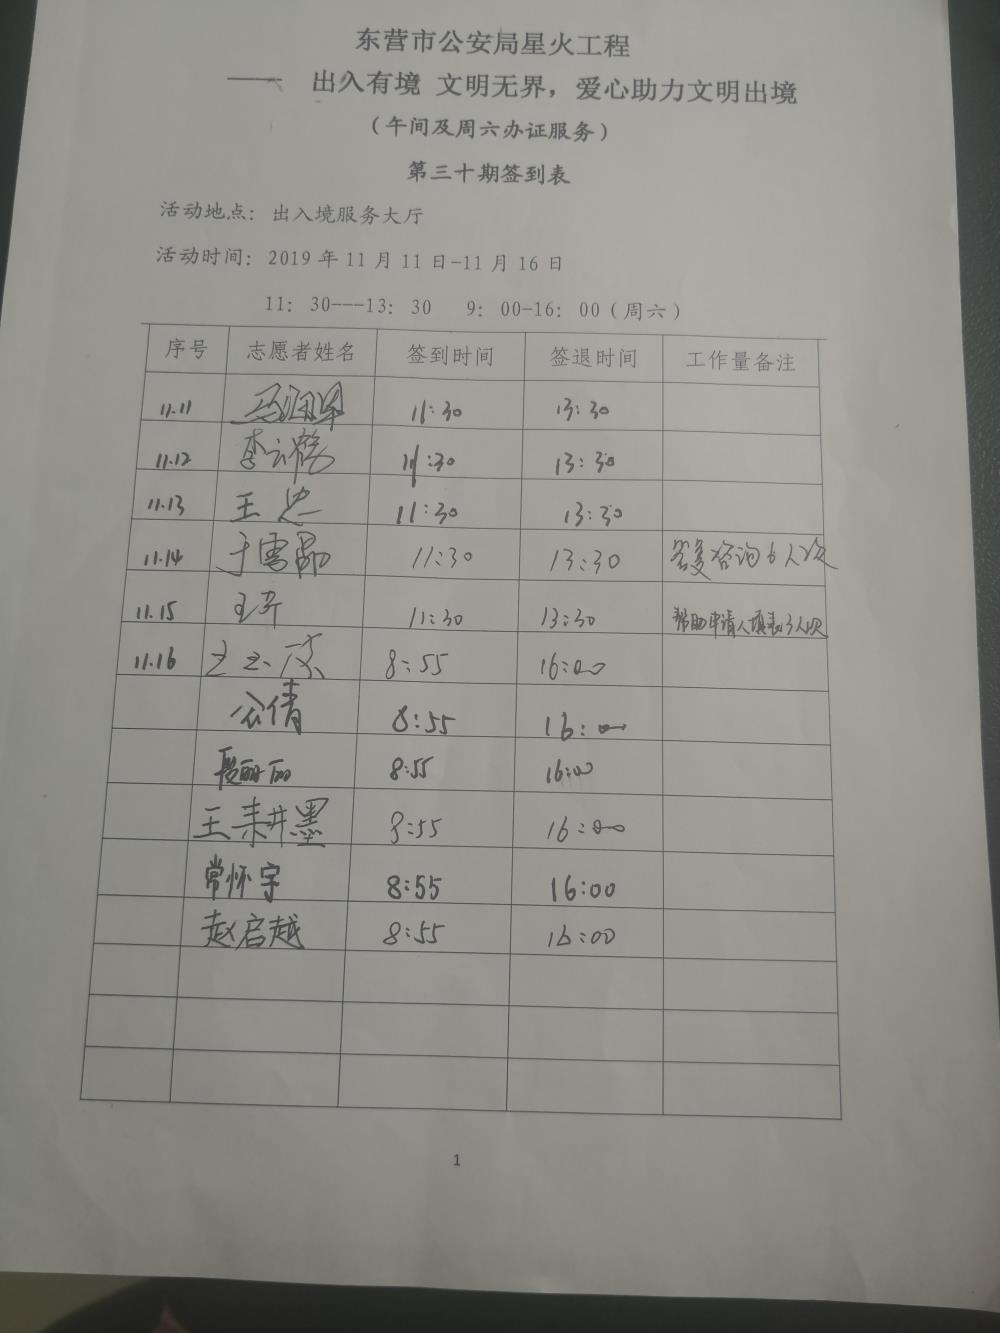 东营市公安局星火工程
—— 出入有境 文明无界，爱心助力文明出境
（午间及周六办证服务）
第三十期签到表
活动地点：出入境服务大厅
活动时间：2019 年 11 月 11 日-11 月 16 日
11：30---13：30 9：00-16：00（周六）
序号 志愿者姓名 签到时间 签退时间 工作量备注
11.11 11:30 13:30
11.12 李云鹤 11:30 13:30
11.13 王忠 11:30 13:30
11.14 于雪 11:30 13:30 答复咨询6人次
11.15 11:30 13:30 帮助申请人填表3人次
11.16 8:55 16:00
公倩 8:55 16:00
段丽丽 8:55 16:00
王耒井墨 8:55 16:00
常怀宇 8:55 16:00
赵启越 8:55 16:00
1